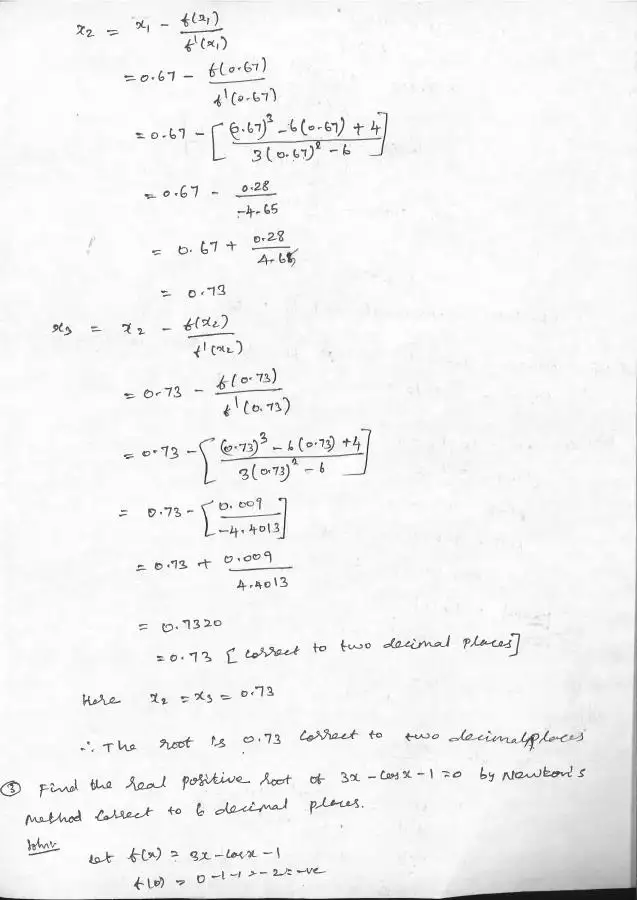 x₂ = x₁ - f(x₁)/f'(x₁)
= 0.67 - f(0.67)/f'(0.67)
= 0.67 - [(0.67)³ - 6(0.67) + 4 / 3(0.67)² - 6]
= 0.67 - 0.28/-4.65
= 0.67 + 0.28/4.65
= 0.73
x₃ = x₂ - f(x₂)/f'(x₂)
= 0.73 - f(0.73)/f'(0.73)
= 0.73 - [(0.73)³ - 6(0.73) + 4 / 3(0.73)² - 6]
= 0.73 - [0.009/-4.4013]
= 0.73 + 0.009/4.4013
= 0.7320
= 0.73 [correct to two decimal places]
Here x₂ = x₃ = 0.73
∴ The root is 0.73 correct to two decimal places
③ Find the real positive root of 3x - cos x - 1 = 0 by Newton's
method correct to 6 decimal places.
Soln:
Let f(x) = 3x - cos x - 1
f(0) = 0 - 1 - 1 = -2 = -ve